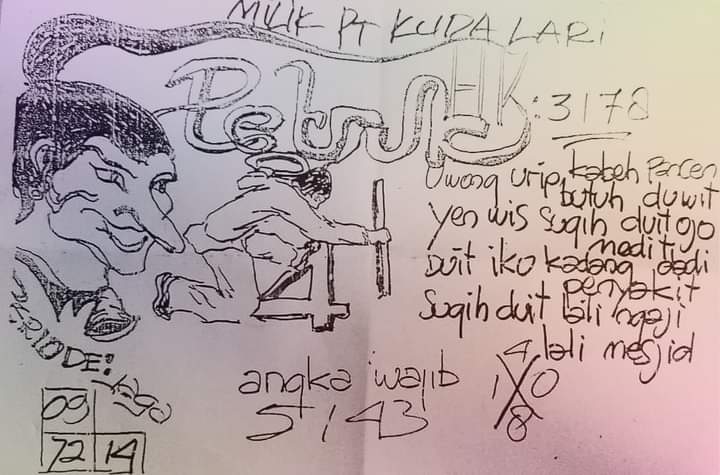 MILIK PT KUDA LARI
Petruk
HK: 3178
Uwong urip, kabeh Pancen
butuh duwit
yen wis sugih duit ojo
medit
Duit iko kadang dadi
penyakit
Sugih duit lali ngaji
lali mesjid
41
RIODE:
09
72 14
angka wajib
5143
4
1 X 0
8